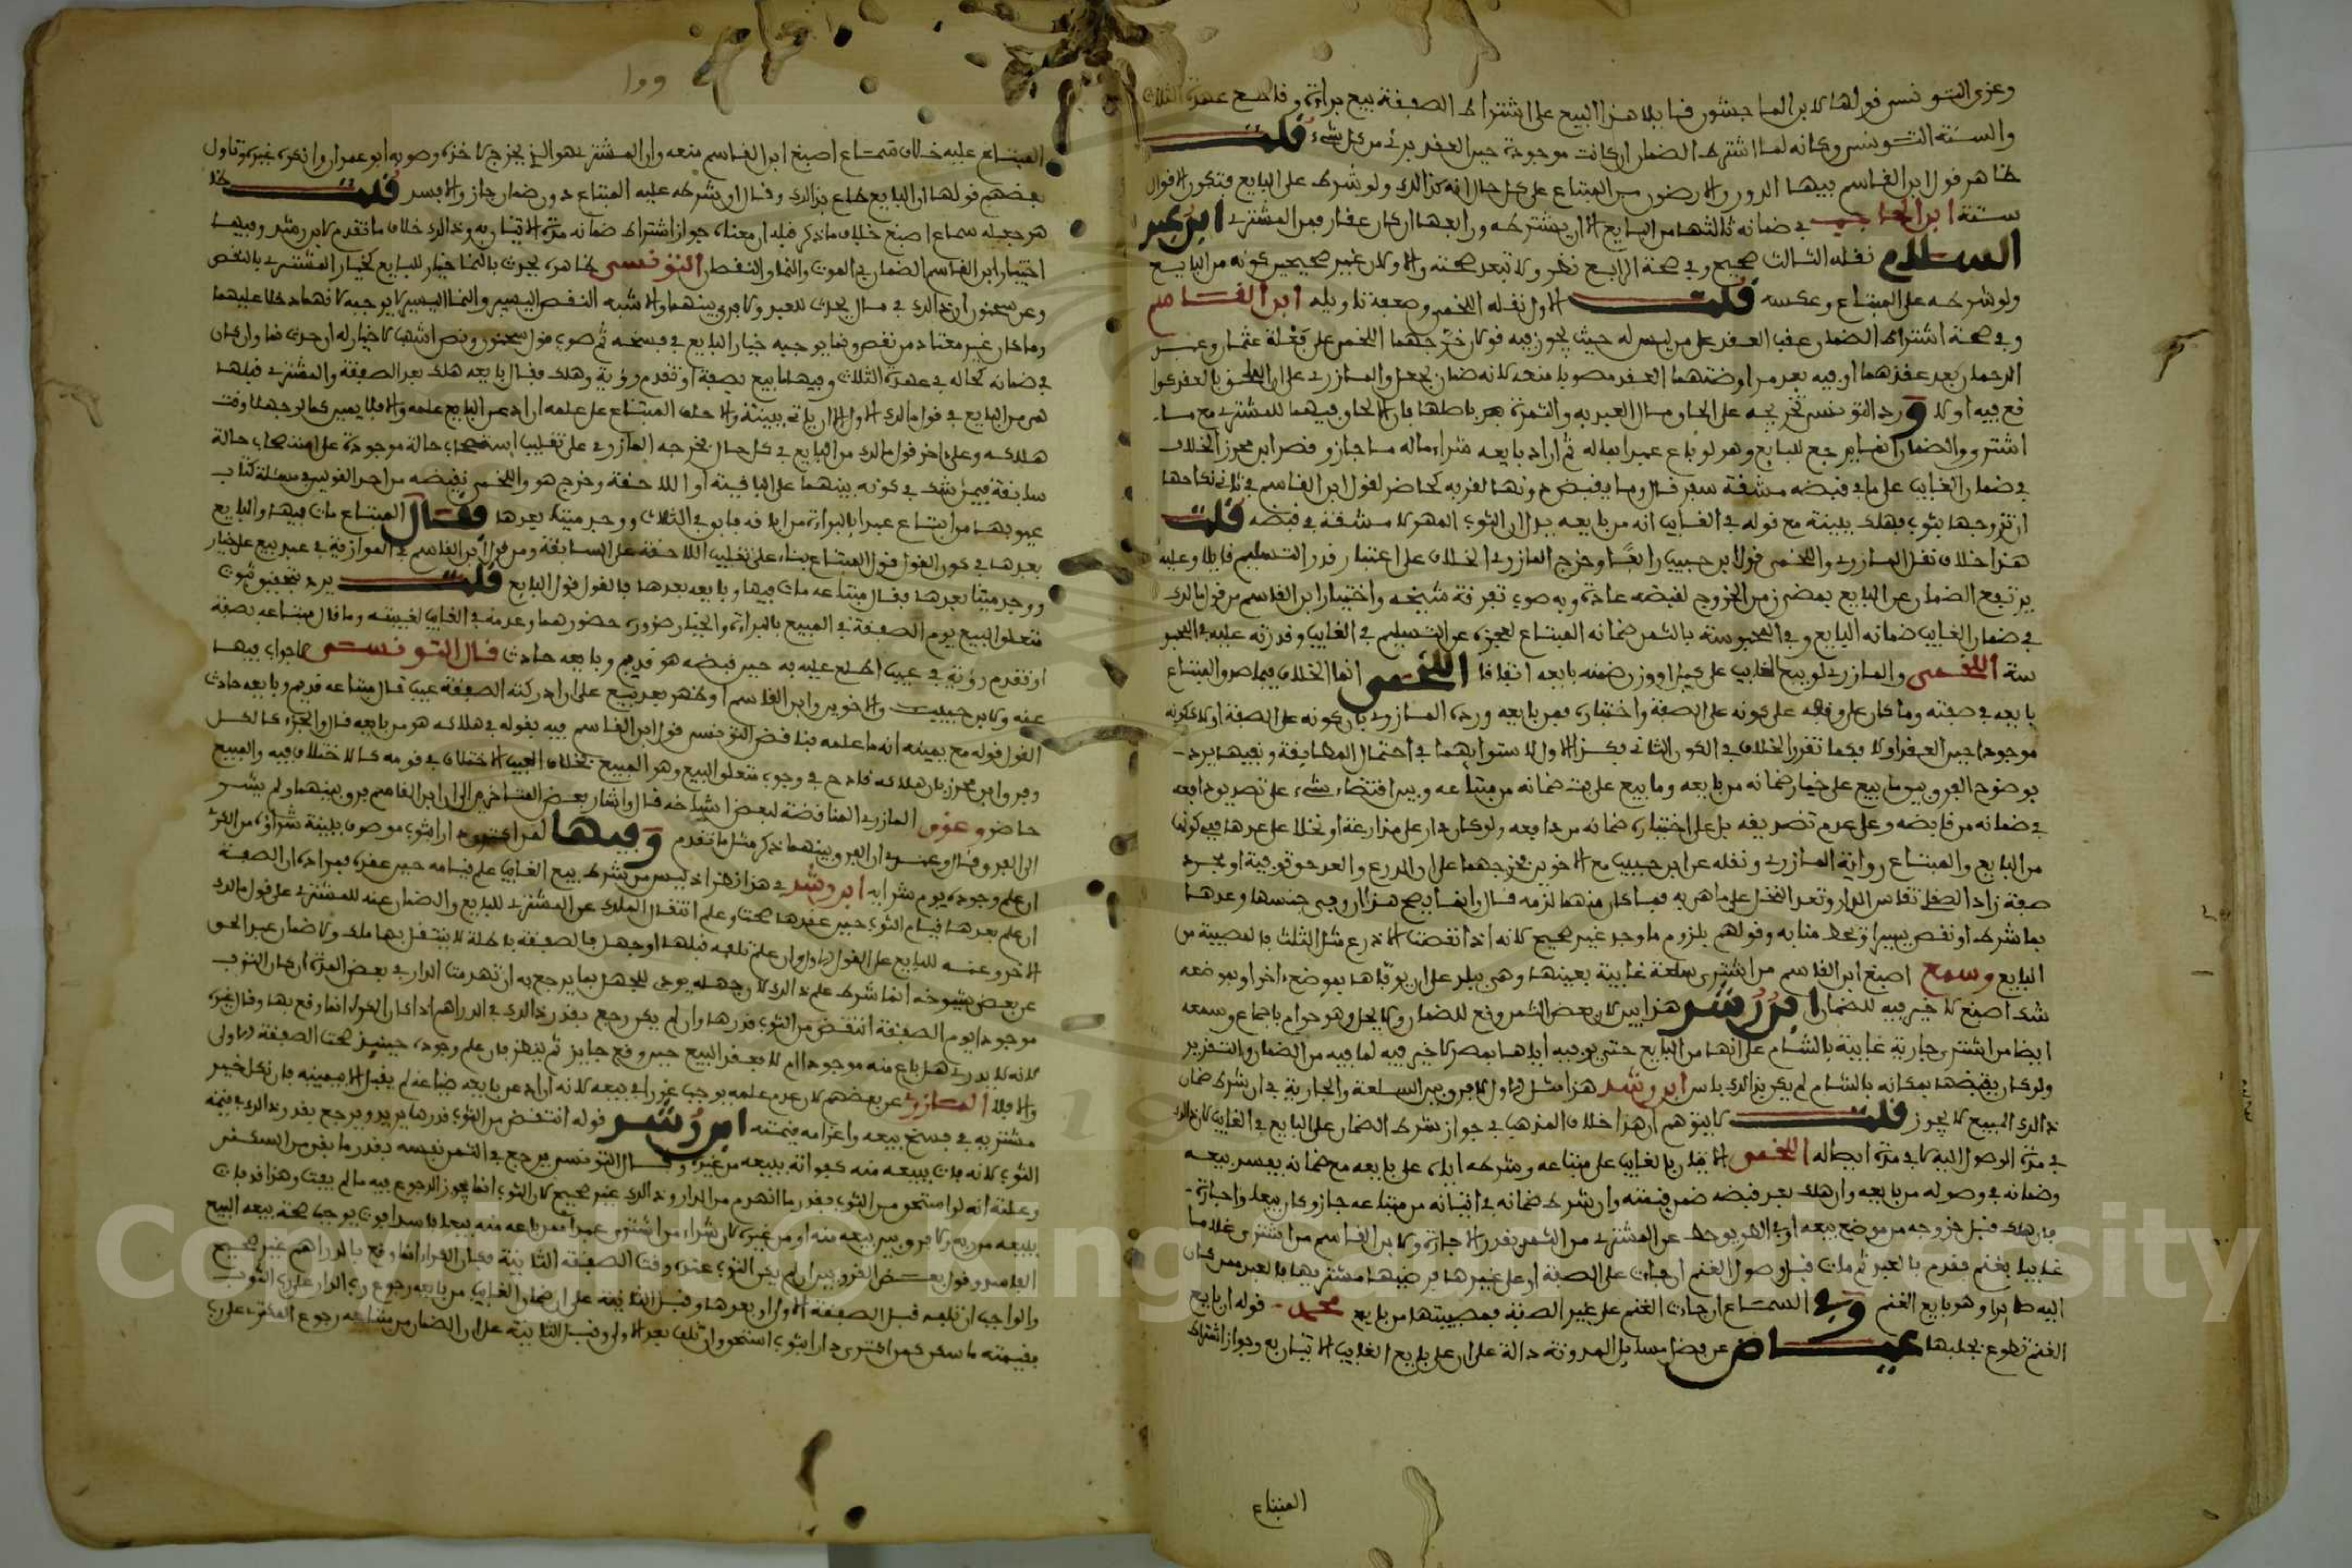 وعزى التونسي قولها لابن الماجشون قايلا هذا البيع على اشتراط الصفقة بيع براءة وقد صح عهدة الثلاث
والسنة التونسي وكانه لما اشترط الضمان ان كانت موجودة حين العقد برئ من كل شيء قلت
ظاهر قول ابن القاسم فيها الدور والارضون من المبتاع على كل حال انه كذلك ولو شرط على البايع فتكون الاقوال
ستة ابن الحاجب في ضمانه ثالثها من البايع الا ان يشترطه ورابعها ان كان عقار فمن المشتري ابن عبد
السلام نقله الثالث صحيح وفي صحة الرابع نظر ولا تبعد صحته والاولان غير صحيحين كونه من البايع
ولو شرطه على المبتاع وعكسه قلت الاول نقله اللخمي وضعفه تاويله ابن القاسم
وفي صحة اشتراط الضمان عقب العقد على من ليس له حيث يجوز فيه قولان خرجهما اللخمي على فعلة عثمان وعبد
الرحمان بعد عقدهما او فيه بعد مراوضتهما العقد مصوبا منعه لانه ضمان بجعل والمازري على ان الملحق بالعقد كوا
قع فيه او لا ورد التونسي تخريجه على الحاق مال العبد به والثمرة بعد باصلها بان الالحاق فيهما للمشتري مع ما
اشترى والضمان انما يرجع للبايع وهو لو باع عبدا بماله ثم اراد بايعه شراء ماله ما جاز وقصر ابن محرز الخلاف
في ضمان الغايب على ما في قبضه مشقة سفر قال وما يقبض دونها لقربه كحاضر لقول ابن القاسم في ثاني نكاحها
ان تزوجها بثوب فهلك ببينة مع قوله في الغايب انه من بايعه يدل ان الثوب المهر لا مشقة في قبضه قلت
هذا خلاف نقل المازري واللخمي قول ابن حبيب رابعا وخرج المازري الخلاف على اعتبار قدر التسليم قايلا وعليه
يرتفع الضمان عن البايع بمضي زمن الخروج لقبضه عادة وبه صوب تفرقة شيخه واختيار ابن القاسم من قول مالك
في ضمان الغايب ضمانه البايع وفي المحبوسة بالثمن ضمانه المبتاع لعجزه عن التسليم في الغايب وقدرته عليه في المحبو
سة اللخمي والمازري لو بيع الغايب على كيل او وزن ضمنه بايعه اتفاقا اللخمي انما الخلاف فيما صدق المبتاع
بايعه في صفته وما كان على وقفه على كونه على الصفة واختباره فمن بايعه ورده المازري بان كونه على الصفة او لا ككونه
موجودا حين العقد او لا فكما تقرر الخلاف في الكون الثاني فكذا الاول لاستوايهما في احتمال المطابقة ونفيها يرد
بوضوح الفرق بين ما بيع على خيار ضمانه من بايعه وما بيع على بت ضمانه من مبتاعه وبين اقتضاء شيء على تصديق دافعه
في ضمانه من قابضه وعلى عدم تصديقه بل على اختباره ضمانه من دافعه ولو كان دارا على مذارعة او نخلا على عددها ففي كونها
من البايع والمبتاع رواية المازري ونقله عن ابن حبيب مع الاخوين مخرجهما على ان الذرع والعدد حق توفية او مجرد
صفة زاد الصقلي تقاس الدار وتعد النخل على ما هي به فما كان منهما لزمه قال وانما يصح هذا ان وفى جنسها وعددها
بما شرط او نقص يسيرا وتحط منابه وقولهم بلزوم ما وجد غير صحيح لانه اذا نقصت الاذرع مثل الثلث فالمصيبة من
البايع وسمع اصبغ ابن القاسم من اشترى سلعة غايبة بعينها وهي ببلد على ان يوفاها بموضع اخر او بموضعه
شك اصبغ لا خير فيه للضمان ابن رشد هذا بين لان بعض الثمن وقع للضمان ولا يحل وهو حرام باجماع وسمعه
ايضا من اشترى جارية غايبة بالشام على انها من البايع حتى يوفيه اياها بمصر لا خير فيه لما فيه من الضمان والتغرير
ولو كان يقبضها بمكانه بالشام لم يكن بذلك باس ابن رشد هذا مثل الاول لا فرق بين السلعة والجارية في ان شرط ضمان
ذلك المبيع لا يجوز قلت لا يتوهم ان هذا خلاف المذهب في جواز شرط الضمان على البايع في الغايب لان ذلك
في مدة الوصول اليه لا في مدة ايصاله اللخمي الاتيان بالغايب على مبتاعه وشرطه اياه على بايعه مع ضمانه يفسد بيعه
وضمانه في وصوله من بايعه وان هلك بعد قبضه ضمن قيمته وان شرط ضمانه في اتيانه من مبتاعه جاز وكان بيعا واجارة
فان هلك قبل خروجه من موضع بيعه او في الطريق حط عن المشتري من الثمن بقدر الاجارة ولابن القاسم من اشترى غلاما
غايبا بغنم فقدم بالعبد ثم مات قبل وصول الغنم ان جات على الصفة او على غيرها فرضيها مشتريها فالعبد ممن كان
اليه صايرا وهو بايع الغنم وفي السماع ان جات الغنم على غير الصفة فمصيبتها من بايع محمد قوله ان بايع
الغنم تطوع بجلبها عياض عن فضل مسايل المدونة دالة على ان على بايع الغايب الاتيان به وجواز اشتراط
المبتاع
المبتاع عليه خلاف سماع اصبغ ابن القاسم منعه وان المشتري هو الذي يخرج لاخذه وصوبه ابو عمران وانكره غيره وتاول
بعضهم قولها ان البايع طاع بذلك وقال او يشترطه عليه المبتاع دون ضمان جاز والا فسد قلت
هو جعله سماع اصبغ خلاف ما ذكر قبله ان معناه جواز اشتراط ضمانه مدة الاتيان به وذلك خلاف ما تقدم لابن رشد وفيها
اختيار ابن القاسم الضمان في الموت والنما والنقصان التونسي ظاهره يحدث بالنما خيار للبايع كخيار المشتري بالنقص
وعن سحنون ان ذلك في مال يحدث للعبد ولا فرق بينهما والاشبه النقص اليسير والنما اليسير لا يوجبه لانهما دخلا عليهما
وما كان غير معتاد من نقص ونما يوجبه خيار البايع في فسخه ثم صوب قول سحنون ونص اشهب لا خيار له ان حدث نما وان كان
في ضمانه كحاله في عهدة الثلاث وفيها ما بيع بصفة او تقدم رؤية وهلك فقال بايعه هلك بعد الصفقة والمشتري قبلها
هي من البايع في قول مالك الاول الا ان ياتي ببينة والا حلف المبتاع على علمه ان ادعى البايع علمه والا فلا يمين كما لو جهلا وقت
هلاكه وعلى اخر قول مالك من البايع في كل حال خرجه المازري على تغليب استصحاب حالة موجودة على استصحاب حالة
سابقة فيمن شك في كونه بينهما على الباقية او اللاحقة وخرج هو واللخمي نقيضه من احد القولين في مسئلة كتاب
عيوبها من ابتاع عبدا بالبراءة من اباقه فابق في الثلاث ووجد ميتا بعدها فقال المبتاع مات فيها والبايع
بعدها في كون القول قول المبتاع بناء على تغليب اللاحقة على السابقة ومن قول ابن القاسم في الموازية في عبد بيع على خيار
ووجد ميتا بعدها فقال مبتاعه مات فيها وبايعه بعدها فالقول قول البايع قلت يرد بتحقيق ثبوت
متعلق البيع يوم الصفقة في المبيع بالبراءة والخيار ضرورة حضورهما وعدمه في الغايب لغيبته وما قال مبتاعه بصفة
او تقدم رؤية في عيب اطلع عليه به حين قبضه هو قديم وبايعه حادث قال التونسي ظاجواب فيها
عنه ولابن حبيب والاخوين وابن القاسم او ظهر بعد بيع على ان ادركته الصفقة عيب قال مبتاعه قديم وبايعه حادث
القول قوله مع يمينه انه ما علمه فناقض التونسي قول ابن القاسم فيه بقوله في هلاكه هو من بايعه قال والجزء كالكل
وفرق ابن محرز بان هلاكه قادح في وجوب متعلق البيع وهو المبيع بخلاف العيب الاختلاف في قدمه كالاختلاف فيه والمبيع
حاضر وعزى المازري المناقضة لبعض اشياخه قال واشار بعض المتاخرين الى ان ابن القاسم فرق بينهما ولم يشر
الى الفرق قال وعندي ان الفرق بينهما ذكر مثل ما تقدم وفيها لمن اعترف دارا بثوب موصوف بلينة شراؤه من الغير
ان علم وجوده يوم شرايه ابن رشد في هذا نظر اذ ليس من شرط بيع الغايب علم قيامه حين عقده فمراده ان الصفقة
ان علم بعدها قيام الثوب حين عقدها صحت وعلم انتقال الملك عن المشتري للبايع والضمان عنه للمشتري على قول مالك
الاخر وعنه للبايع على القول الاول وان علم تلفه قبلها او جهل فالصفقة باطلة لا ينتقل بها ملك ولا ضمان عبد الحق
عن بعض شيوخه انما شرط علم ذلك لان جهله يودي للجهل بما يرجع به ان تهدمت الدار في بعض المدة ان كان الثوب
موجودا يوم الصفقة انتقض من الثوب قدرها وان لم يكن رجع بقدر ذلك في الدراهم اذا كان الكراء انما وقع بها وقال غيره
لانه لا يدري هل باع منه موجودا ام لا فعقد البيع حين وقع جايز ثم ينظر فان علم وجوده حينئذ صحت الصفقة الاولى
والا فلا المازري عن بعضهم لان عدم علمه يوجب غررا في بيعه لانه اراد عن بايعه ضياعه لم يقبل الا بيمينه فان نكل خير
مشتريه في فسخ بيعه واغرامه قيمته ابن رشد قوله انتقض من الثوب قدرها يريد ويرجع بقدر ذلك في قيمة
الثوب لانه فات ببيعه منه كفواته ببيعه من غيره وقال التونسي يرجع في الثمن نفسه بقدر ما بقي من السكنى
وعلته انه لو استحق من الثوب بقدر ما انهدم من الدار وذلك غير صحيح لان الثوب انما يجوز الرجوع فيه ما لم يفت وهذا قد فات
ببيعه من ربه ولا فرق بين بيعه منه او من غيره كان شراء من اشترى عبدا ممن باعه منه بيعا فاسدا فوت يوجب صحة بيعه البيع
الفاسد وقول بعض القرويين ان لم يكن الثوب عنده وقت الصفقة الثانية فكان الكراء انما وقع بالدراهم غير صحيح
والواجب ان تلفه قبل الصفقة الاولى او بعدها وقبل الثانية على ان ضمان الغايب من بايعه رجوع رب الدار على رب الثوب
بقيمته ما سكن كمن اكترى دارا بثوب استحق وان تلف بعد الاولى وقبل الثانية على ان الضمان من مبتاعه رجوع المكتري على رب